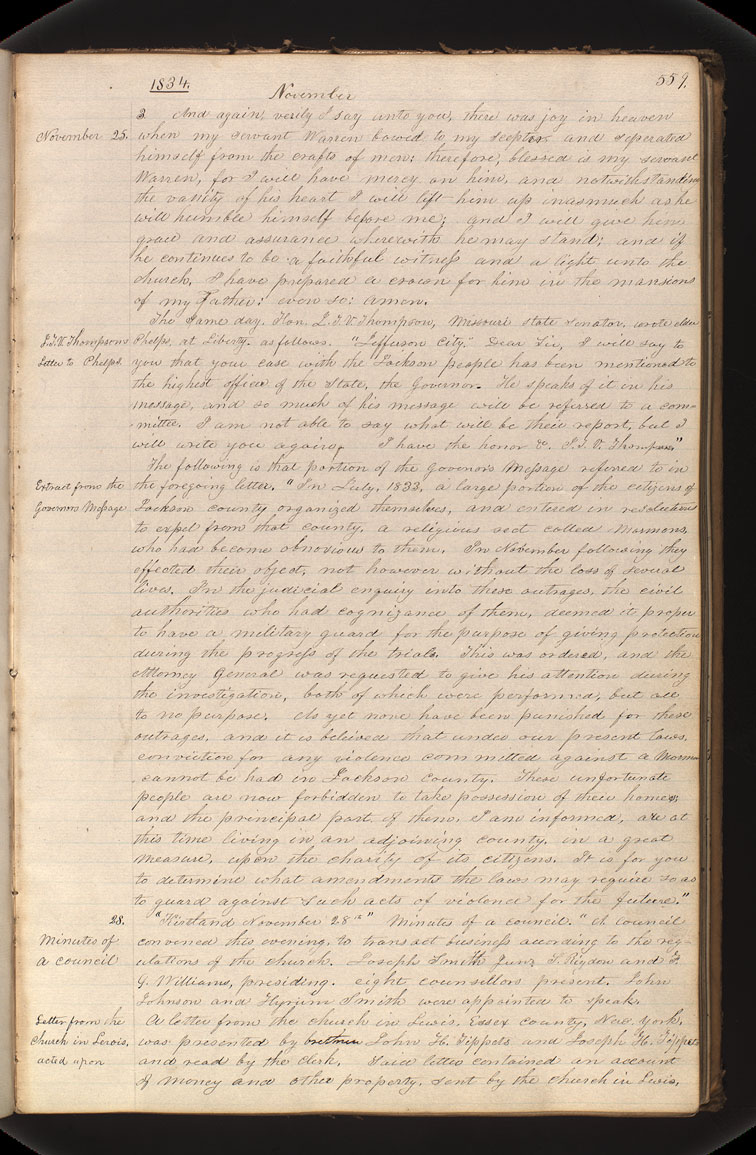 1834. 559.
November
3 And again, verily I say unto you, there was joy in heaven
November 25. when my servant Warren bowed to my scepter, and seperated
himself from the crafts of men; therefore, blessed is my servant
Warren, for I will have mercy on him, and notwithstanding
the vanity of his heart I will lift him up inasmuch as he
will humble himself before me; and I will give him
grace and assurance wherewith he may stand; and if
he continues to be a faithful witness and a light unto the
church, I have prepared a crown for him in the mansions
of my Father: even so: Amen.
The same day, Hon. J. T. V. Thompson, Missouri state senator, wrote elder
J. T. V. Thompsons Phelps, at Liberty, as follows. "Jefferson City." Dear Sir, I will say to
Letter to Phelps. you that your case with the Jackson people has been mentioned to
the highest officer of the State, the Governor. He speaks of it in his
message, and so much of his message will be referred to a com=
mittee. I am not able to say what will be their report, but I
will write you again. I have the honor &c. J. T. V. Thompson"
The following is that portion of the Govenors Message refered to in
Extract from the the foregoing letter. "In July, 1833, a large portion of the citizens of
Governors Message Jackson county organized themselves, and entered in resolutions
to expel from that county, a religious sect called Mormons,
who had become obnoxious to them. In November following they
effected their object, not however without the loss of several
lives. In the judicial enquiry into these outrages, the civil
authorities who had cognizance of them, deemed it proper
to have a military guard for the purpose of giving protection
during the progress of the trials. This was ordered, and the
Attorney General was requested to give his attention during
the investigation, both of which were performed, but all
to no purpose. As yet none have been punished for these
outrages, and it is beleived that under our present laws,
conviction for any violence committed against a Mormon
cannot be had in Jackson County. These unfortunate
people are now forbidden to take possession of their homes,
and the principal part of them, I am informed, are at
this time living in an adjoining county, in a great
measure, upon the charity of its citizens. It is for you
to determine what amendments the laws may require so as
to guard against such acts of violence for the future."
28. "Kirtland November 28th" Minutes of a council. "A Council
Minutes of convened this evening, to transact business according to the reg=
a council ulations of the church. Joseph Smith Junr S. Rigdon and F.
G. Williams, presiding. eight counsellors present. John
Johnson and Hyrum Smith were appointed to speak.
Letter from the A letter from the church in Lewis, Essex county, New York,
church in Lewis, was presented by brethren John H. Tippets and Joseph H. Tippets
acted upon and read by the clerk. Said letter contained an account
of money and other property, sent by the church in Lewis,